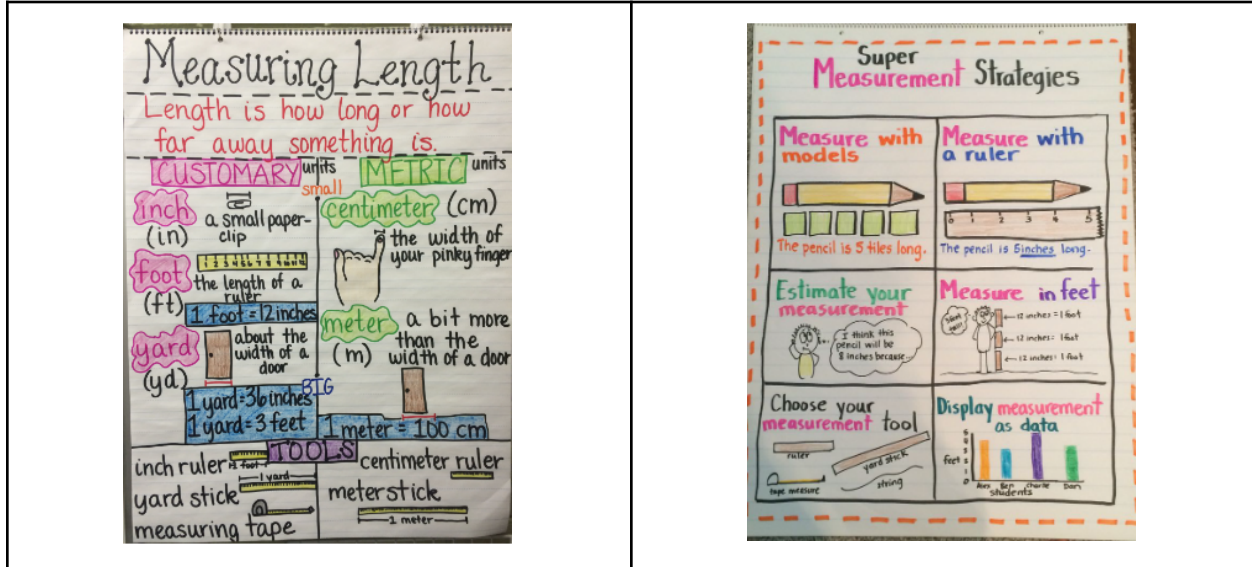 Measuring Length
Length is how long or how
far away something is.
CUSTOMARY units
small
inch
(in)
a small paper-
clip
foot
(ft)
1 2 3 4 5 6 7 8 9 10 11 12
the length of a
ruler
1 foot = 12 inches
yard
(yd)
about the
width of a
door
BIG
1 yard = 36 inches
1 yard = 3 feet
METRIC units
centimeter (cm)
the width of
your pinky finger
meter
(m)
a bit more
than the
width of a door
1 meter = 100 cm
TOOLS
inch ruler
1 foot
yard stick
1 yard
measuring tape
centimeter ruler
meterstick
1 meter
Super
Measurement Strategies
Measure with
models
The pencil is 5 tiles long.
Measure with
a ruler
0 1 2 3 4 5
The pencil is 5inches long.
Estimate your
measurement
I think this
pencil will be
8 inches because...
Measure in feet
12 inches = 1 foot
12 inches = 1 foot
12 inches = 1 foot
Choose your
measurement tool
ruler
yard stick
tape measure
string
Display measurement
as data
feet
Ben Charlie Dan
students